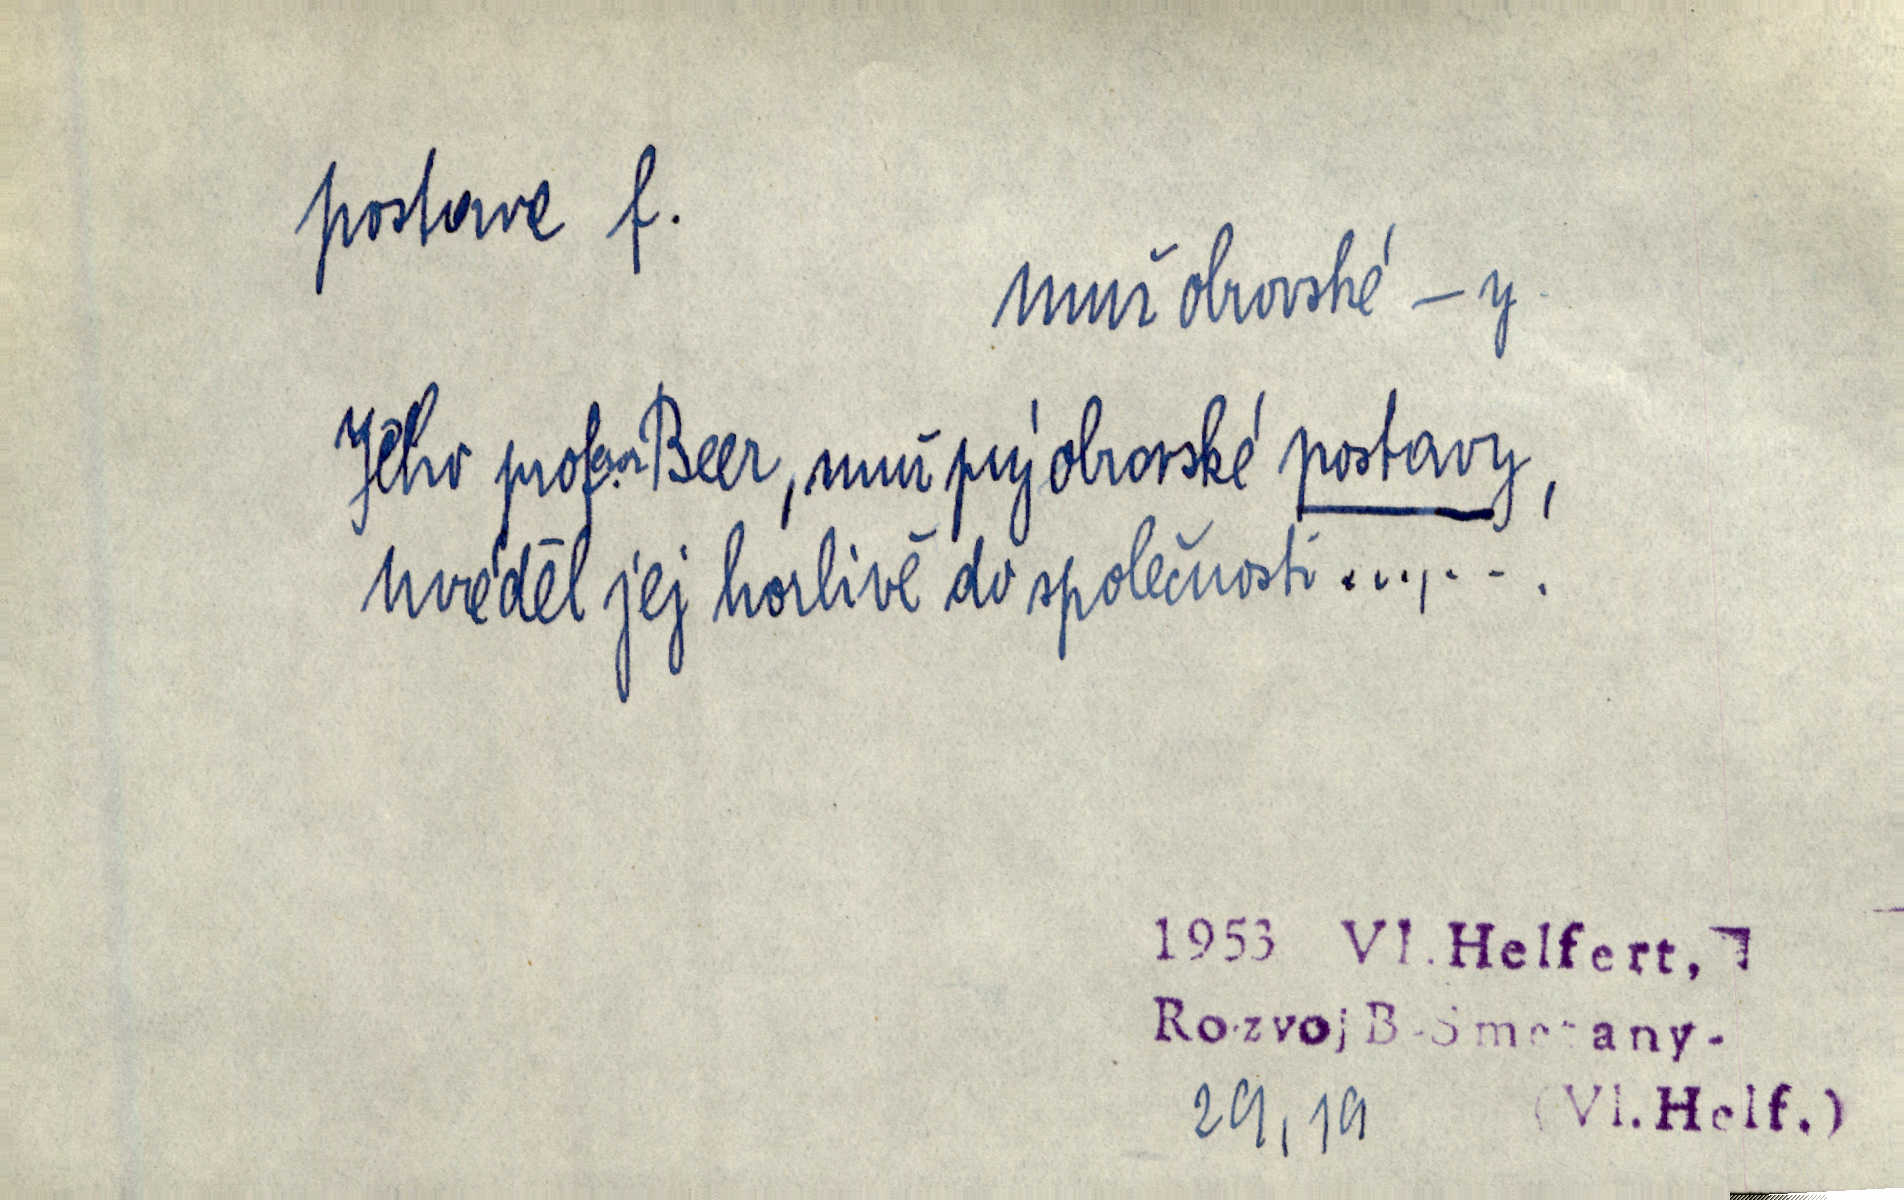 postava f.
muž obrovské – y
Jeho profesor Beer, muž prý obrovské postavy,
uváděl jej horlivě do společnosti .......
1953 Vl. Helfert,
Rozvoj B. Smetany-
29,19 (Vl. Helf.)